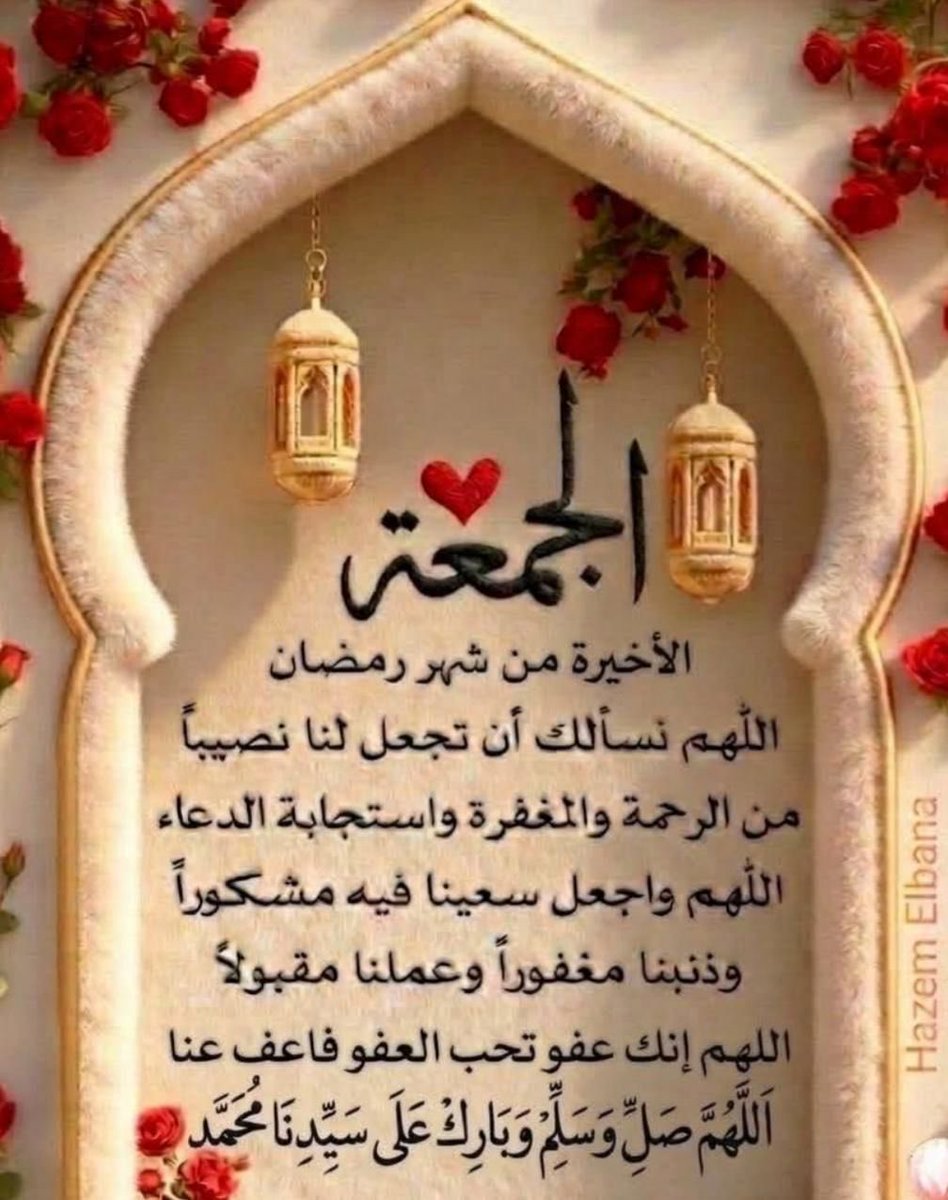 الجمعة
الأخيرة من شهر رمضان
اللهم نسألك أن تجعل لنا نصيباً
من الرحمة والمغفرة واستجابة الدعاء
اللهم واجعل سعينا فيه مشكوراً
وذنبنا مغفوراً وعملنا مقبولاً
اللهم إنك عفو تحب العفو فاعف عنا
اَللَّهُمَّ صَلِّ وَسَلِّمْ وَبَارِكْ عَلَى سَيِّدِنَا مُحَمَّد
Hazem Elbana